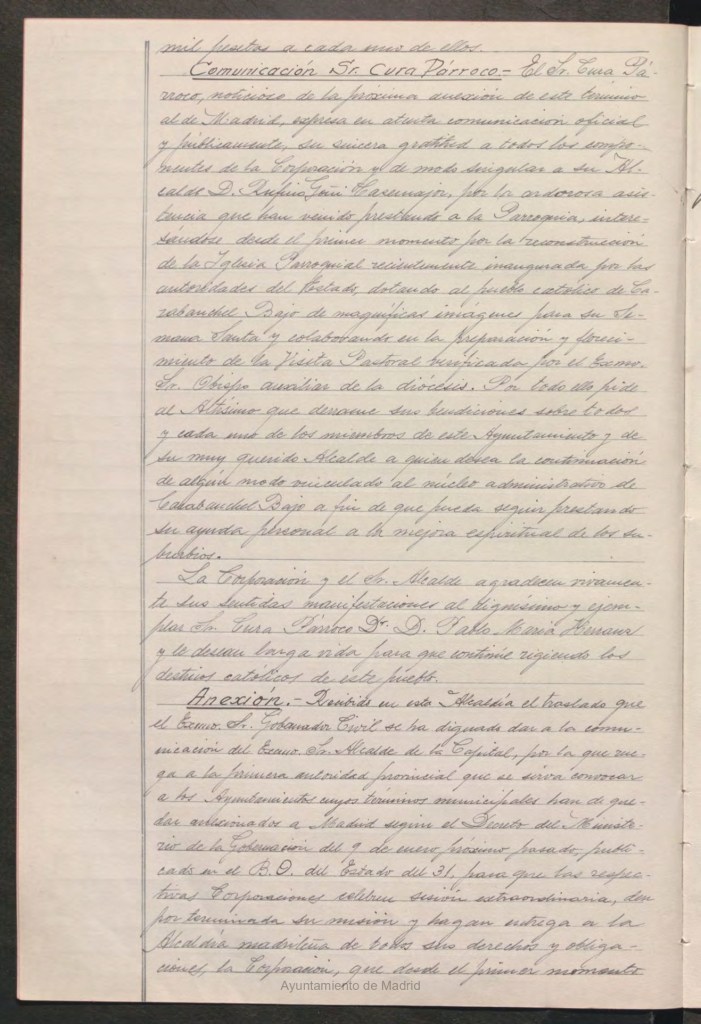 mil pesetas a cada uno de ellos.
Comunicación Sr. Cura Párroco.- El Sr. Cura Pá-
rroco, noticioso de la próxima anexión de este término
al de Madrid, expresa en atenta comunicación oficial
y públicamente, su sincera gratitud a todos los compo-
nentes de la Corporación y de modo singular a su Al-
calde D. Rufino Goñi Casemajor, por la ardorosa asis-
tencia que han venido prestando a la Parroquia, intere-
sándose desde el primer momento por la reconstrucción
de la Iglesia Parroquial recientemente inaugurada por las
autoridades del Estado, dotando al pueblo católico de Ca-
rabanchel Bajo de magníficas imágenes para su Se-
mana Santa y colaborando en la preparación y floreci-
miento de la Visita Pastoral verificada por el Excmo.
Sr. Obispo auxiliar de la diócesis. Por todo ello pide
al Altísimo que derrame sus bendiciones sobre todos
y cada uno de los miembros de este Ayuntamiento y de
su muy querido Alcalde a quien desea la continuación
de algún modo vinculado al núcleo administrativo de
Carabanchel Bajo a fin de que pueda seguir prestando
su ayuda personal a la mejora espiritual de los su-
burbios.
La Corporación y el Sr. Alcalde agradecen vivamen-
te sus sentidas manifestaciones al dignísimo y ejem-
plar Sr. Cura Párroco Dr. D. Pablo María
y le desean larga vida para que continúe rigiendo los
destinos católicos de este pueblo.
Anexión.- Recibido en esta Alcaldía el traslado que
el Excmo. Sr. Gobernador Civil se ha dignado dar a la comu-
nicación del Excmo. Sr. Alcalde de la Capital, por la que rue-
ga a la primera autoridad provincial que se sirva convocar
a los Ayuntamientos cuyos términos municipales han de que-
dar anexionados a Madrid según el Decreto del Ministe-
rio de la Gobernación del 9 de enero próximo pasado, publi-
cado en el B.O. del Estado del 31, para que las respec-
tivas Corporaciones celebren sesión extraordinaria, den
por terminada su misión y hagan entrega a la
Alcaldía madrileña de todos sus derechos y obliga-
ciones, la Corporación, que desde el primer momento
Ayuntamiento de Madrid